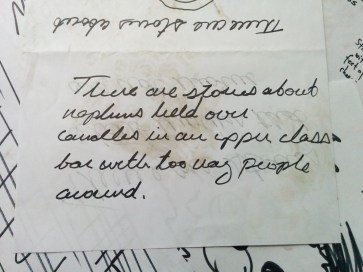 There are stories about
There are stories about
napkins held over
candles in an upper class
bar with too many people
around.